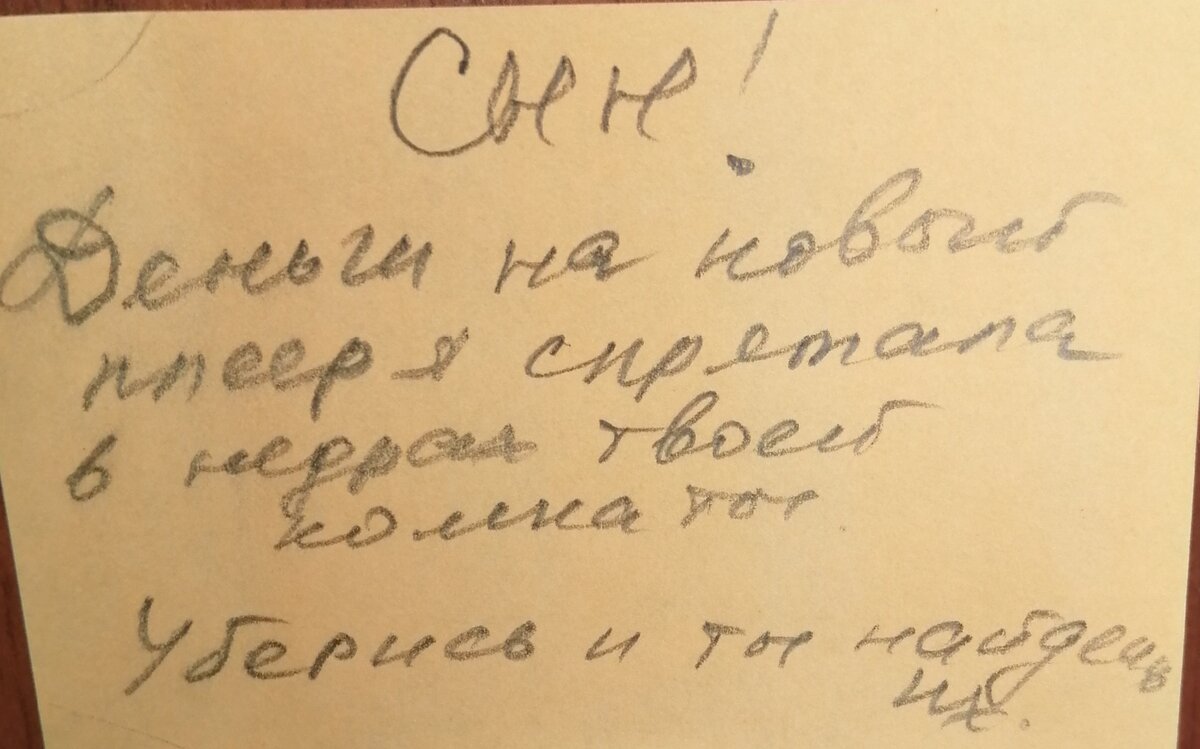 Сын!
Деньги на новый
плеер я спрятала
в недрах твоей
комнаты.
Уберись и ты найдешь
их.